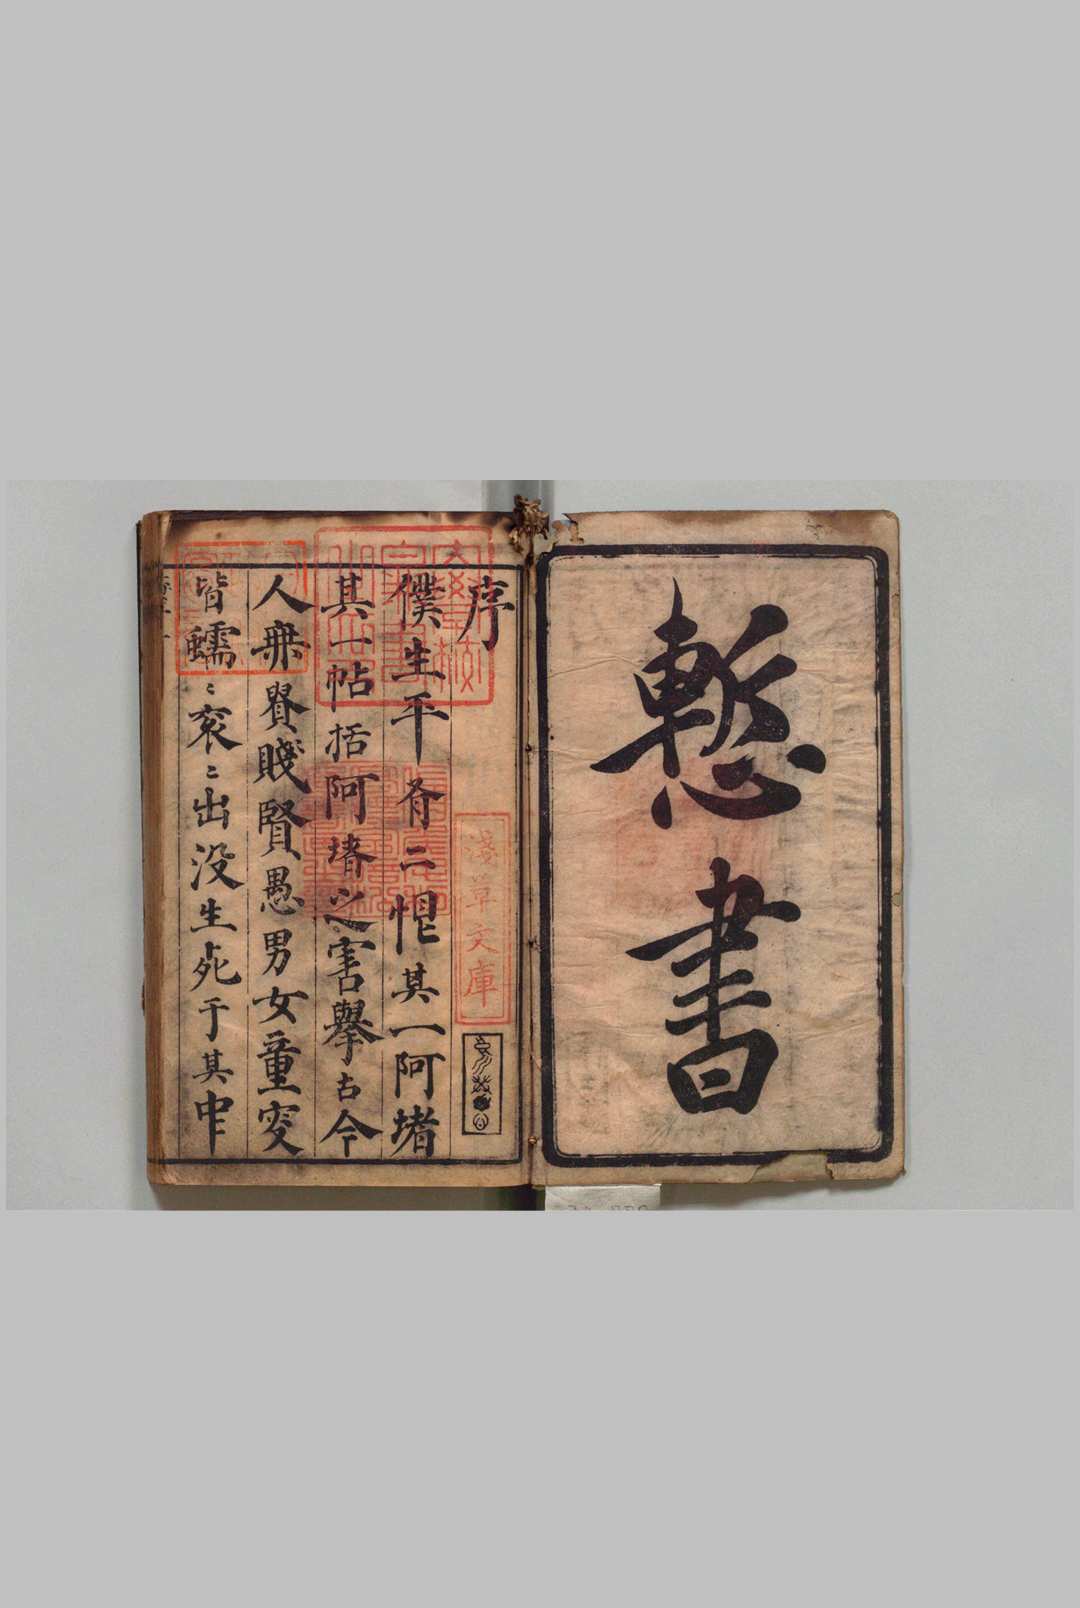 慙書
序
淺草文庫
僕生平有二恨其一阿堵
其一帖括阿堵之害舉古今
人無貴賤賢愚男女童叟
皆蠕〻衮〻出没生死于其中